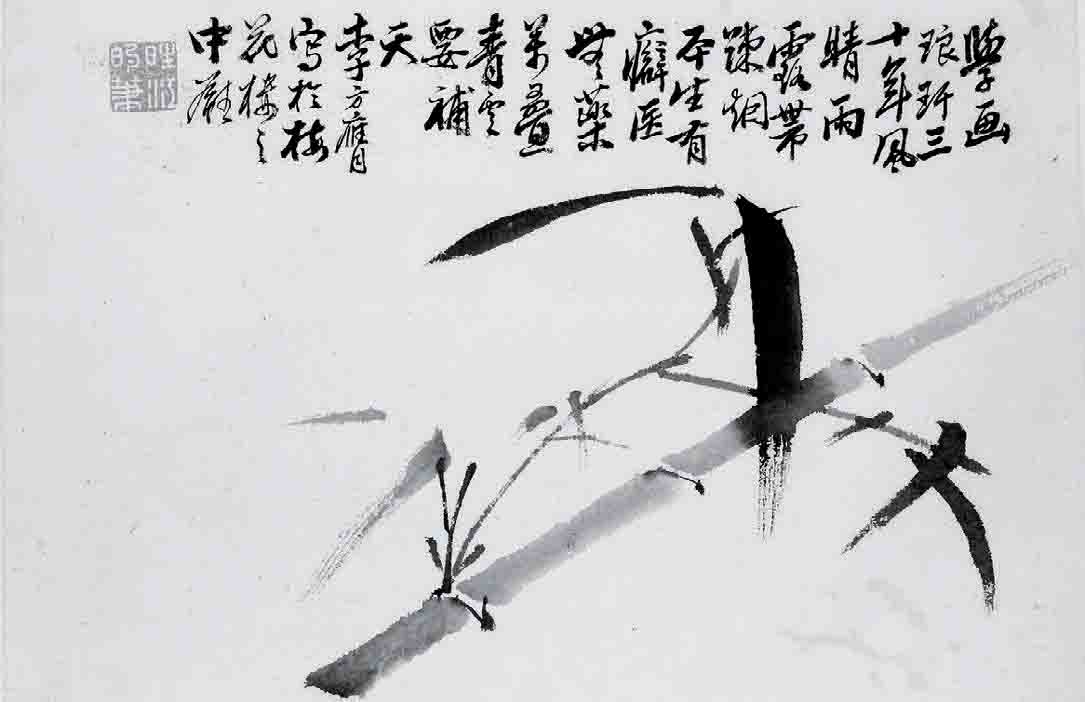 學画
琅玕三
十年風
晴雨
露帶
踈烟
平生有
癖医
無藥
萬疊
青雲
要補
天
李方膺
写於梅
花樓之
中
晴江
的筆